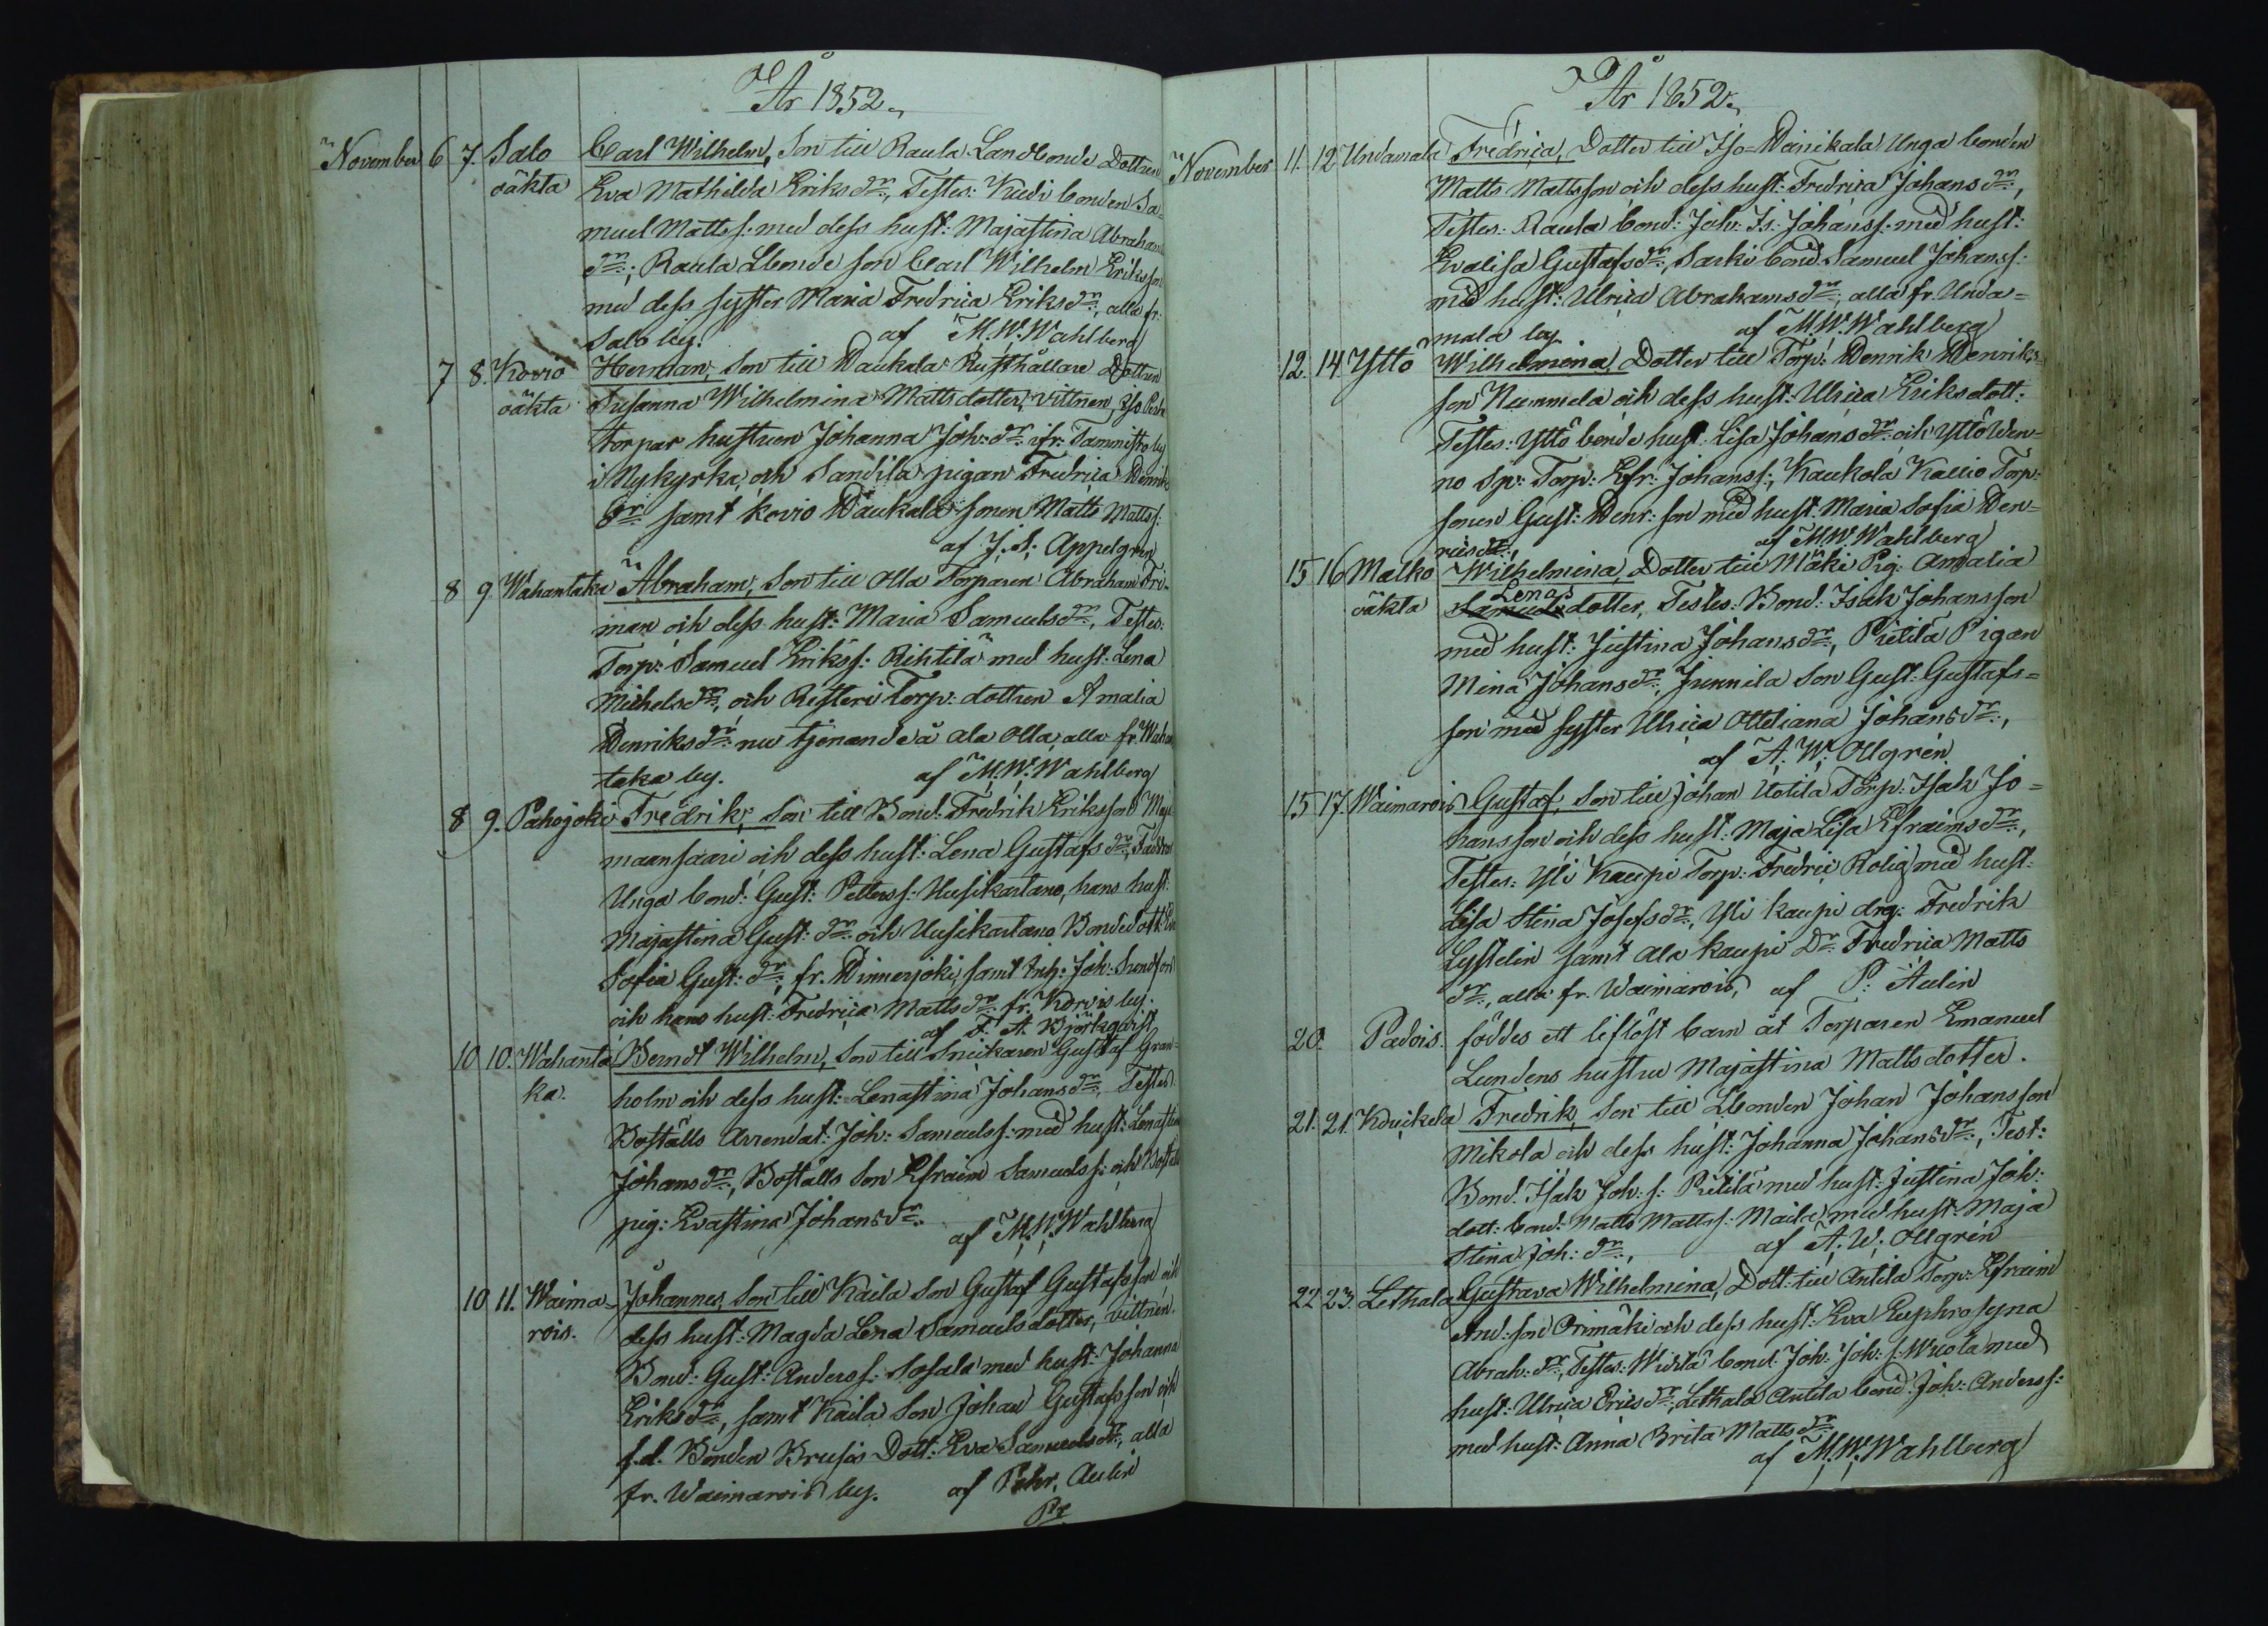 År 1852.
November 6 7. Salo Carl Wilhelm, Son till Raula Landbonde Dottren
oäkta Eva Mathilda Eriks dr:, Testes: Kudi bonden Sa-
muel Matts s: med dess hust: Majastina Abrahams
dr:; Raula Lbonde son Carl Wilhelm Eriksson
med dess syster Maria Fredrica Eriks dr:, alla fr:
Salo by. af M. W. Wahlberg
7 8. Kovio Herman, Son till Haukala Rusthållare Dottren
oäkta Susanna Wilhelmina Matts dotter, vittnen,
torpar hustruen Johanna Joh: dr: ifr: Tammisto by
i Nykyrka, och Sandila pigan Fredrica Henriks
dr: samt Kovio Haukala sonen Matts Matts s:
af J. S. Appelgren
8 9 Wahantaka Abraham, Son till Olla Torparen Abraham Fri-
man och dess hust: Maria Samuels dr:, Testes:
Torp: Samuel Eriks s: Rihtilä med hust: Lena
Michels dr:, och Risteri Torp: dottren Amalia
Henriks dr: nu tjenande å Ala Olla, alla fr. Wahan
taka by. af M. W. Wahlberg
8 9. Pahojoki Fredrik, Son till Bond: Fredrik Eriksson
maansaari och dess hust: Lena Gustafs dr:,
Unga bond: Gust: Petters s: Uusikartano, hans hust:
Majastina Gust: dr: och Uusikartano Bondedott: Eva
Sofia Gust: dr:, fr. Hinnerjoki, samt Inh: Joh: Sundson
och hans hust: Fredrica Matts dr: fr. Korvis by.
af F. A. Björkqvist
10 10. Wahanta- Berndt Wilhelm, Son till Snickaren Gustaf Gran-
ka. holm och dess hust: Lenastina Johans dr:, Testes:
Boställs Arrendat: Joh: Samuels s: med hust: Lenastina
Johans dr:, Boställs Son Efraim Samuels s: och Boställs
pig: Evastina Johans dr:
af M. W. Wahlberg
10 11. Waima- Johannes, Son till Kaila Son Gustaf Gustafsson och
rois. dess hust: Magda Lena Samuels dotter, vittnen.
Bond: Gust: Anders s: Sosala med hust: Johanna
Eriks dr:, samt Kaila Son Johan Gustafsson och
f.d. Bonden Brusas Dott: Eva Samuels dr:, alla
fr. Waimarois by. af Pehr. Aulin
År 1852.
November 11. 12 Undamala Fredrica, Dotter till Iso-Heinikala Unga bonden
Matts Mattsson och dess hust: Fredrica Johans dr:,
Testes: Raula bond: Joh: Is: Johans s: med hust:
Evalisa Gustafs dr:, Sarki bond Samuel Johans s:
med hust: Ulrica Abrahams dr:, alla fr. Unda-
mala by. af M. W. Wahlberg
12. 14. Yttö Wilhelmina, Dotter till Torp: Henrik Henriks-
son Nummela och dess hust: Ulrica Eriks dott:
Testes: Yttö bonde hust: Lisa Johans dr: och Yttö Wen-
no Sp: Torp: Efr: Johans s:, Kaukola Kallio Torp:
sonen Gust: Henr: son med hust: Maria Sofia Hen-
rics dr:, af M. W. Wahlberg
15 16 Malko Wilhelmina, Dotter till Mäki Pig: Amalia
Lenas
oäkta Samuels dotter, Testes: Bond: Isak Johansson
med hust: Justina Johans dr:, Pietilä Pigan
Mina Johans dr:, Junnila Son Gust: Gustafs-
son med syster Ulrica Ottiliana Johans dr:,
af A. W. Ollgrén
15 17. Waimarois Gustaf, Son till Johan Uotila Torp: Isak Jo-
hansson och dess hust: Maja Lisa Efraims dr:,
Testes: Yli Kaupi Torp: Fredric Rolig med hust:
Lisa Stina Josefs dr:, Yli Kaupi drg: Fredrik
Lystelin samt Ala Kaupi Dr: Fredrica Matts
dr:, alla fr. Waimarois, af P. Aulin
20. Padois. föddes ett liflöst barn åt Torparen Emanuel
Lundens hustru Majastina Matts dotter.
21. 21. Kouckela Fredrik, Son till Lbonden Johan Johansson
Mikola och dess hust: Johanna Johans dr:, Test:
Bond: Isak Joh: s: Pietilä med hust: Justina Joh:
dott: bond: Matts Matts s: Maila, med hust: Maja
Stina Joh: dr:, af A. W. Ollgrén
22 23. Lethala Gustava Wilhelmina, Dott: till Antila Torp: Efraim
And: son Orimäki och dess hust: Eva Euphrosyna
Abrah: dr:, Testes: Widilä bond: Joh: Joh: s: Wuola med
hust: Ulrica Erics dr:, Lethala Antila bond: Joh: Anders s:
med hust: Anna Brita Matts dr:
af M. W. Wahlberg